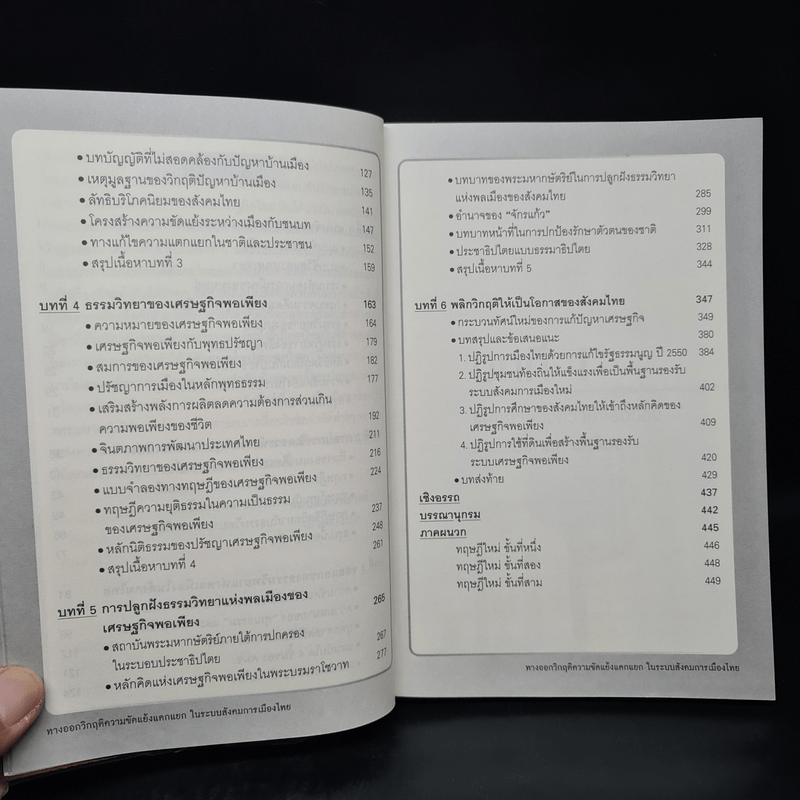 • บทบัญญัติที่ไม่สอดคล้องกับปัญหาบ้านเมือง 127
• เหตุมูลฐานของวิกฤติปัญหาบ้านเมือง 135
• ลัทธิบริโภคนิยมของสังคมไทย 141
• โครงสร้างความขัดแย้งระหว่างเมืองกับชนบท 147
• ทางแก้ไขความแตกแยกในชาติและประชาชน 152
• สรุปเนื้อหาบทที่ 3 159
บทที่ 4 ธรรมวิทยาของเศรษฐกิจพอเพียง 163
• ความหมายของเศรษฐกิจพอเพียง 164
• เศรษฐกิจพอเพียงกับพุทธปรัชญา 179
• สมการของเศรษฐกิจพอเพียง 182
• ปรัชญาการเมืองในหลักพุทธธรรม 177
• เสริมสร้างพลังการผลิตลดความต้องการส่วนเกิน
ความพอเพียงของชีวิต 192
• จินตภาพการพัฒนาประเทศไทย 211
• ธรรมวิทยาของเศรษฐกิจพอเพียง 216
• แบบจำลองทางทฤษฎีของเศรษฐกิจพอเพียง 224
• ทฤษฎีความยุติธรรมในความเป็นธรรม
ของเศรษฐกิจพอเพียง 237
• หลักนิติธรรมของปรัชญาเศรษฐกิจพอเพียง 248
• สรุปเนื้อหาบทที่ 4 261
บทที่ 5 การปลูกฝังธรรมวิทยาแห่งพลเมืองของ
เศรษฐกิจพอเพียง 265
• สถาบันพระมหากษัตริย์ภายใต้การปกครอง
ในระบอบประชาธิปไตย 267
• หลักคิดแห่งเศรษฐกิจพอเพียงในพระบรมราโชวาท 277
ทางออกวิกฤติความขัดแย้งแตกแยก ในระบบสังคมการเมืองไทย
• บทบาทของพระมหากษัตริย์ในการปลูกฝังธรรมวิทยา
แห่งพลเมืองของสังคมไทย 285
• อำนาจของ "จักรแก้ว" 299
• บทบาทหน้าที่ในการปกป้องรักษาตัวตนของชาติ 311
• ประชาธิปไตยแบบธรรมาธิปไตย 328
• สรุปเนื้อหาบทที่ 5 344
บทที่ 6 พลิกวิกฤติให้เป็นโอกาสของสังคมไทย 347
• กระบวนทัศน์ใหม่ของการแก้ปัญหาเศรษฐกิจ 349
• บทสรุปและข้อเสนอแนะ 380
1. ปฏิรูปการเมืองไทยด้วยการแก้ไขรัฐธรรมนูญ ปี 2550 384
2. ปฏิรูปชุมชนท้องถิ่นให้แข็งแรงเพื่อเป็นพื้นฐานรองรับ
ระบบสังคมการเมืองใหม่ 402
3. ปฏิรูปการศึกษาของสังคมไทยให้เข้าถึงหลักคิดของ
เศรษฐกิจพอเพียง 409
4. ปฏิรูปการใช้ที่ดินเพื่อสร้างพื้นฐานรองรับ
ระบบเศรษฐกิจพอเพียง 420
• บทส่งท้าย 429
เชิงอรรถ 437
บรรณานุกรม 442
ภาคผนวก 445
ทฤษฎีใหม่ ขั้นที่หนึ่ง 446
ทฤษฎีใหม่ ขั้นที่สอง 448
ทฤษฎีใหม่ ขั้นที่สาม 449
ทางออกวิกฤติความขัดแย้งแตกแยก ในระบบสังคมการเมืองไทย